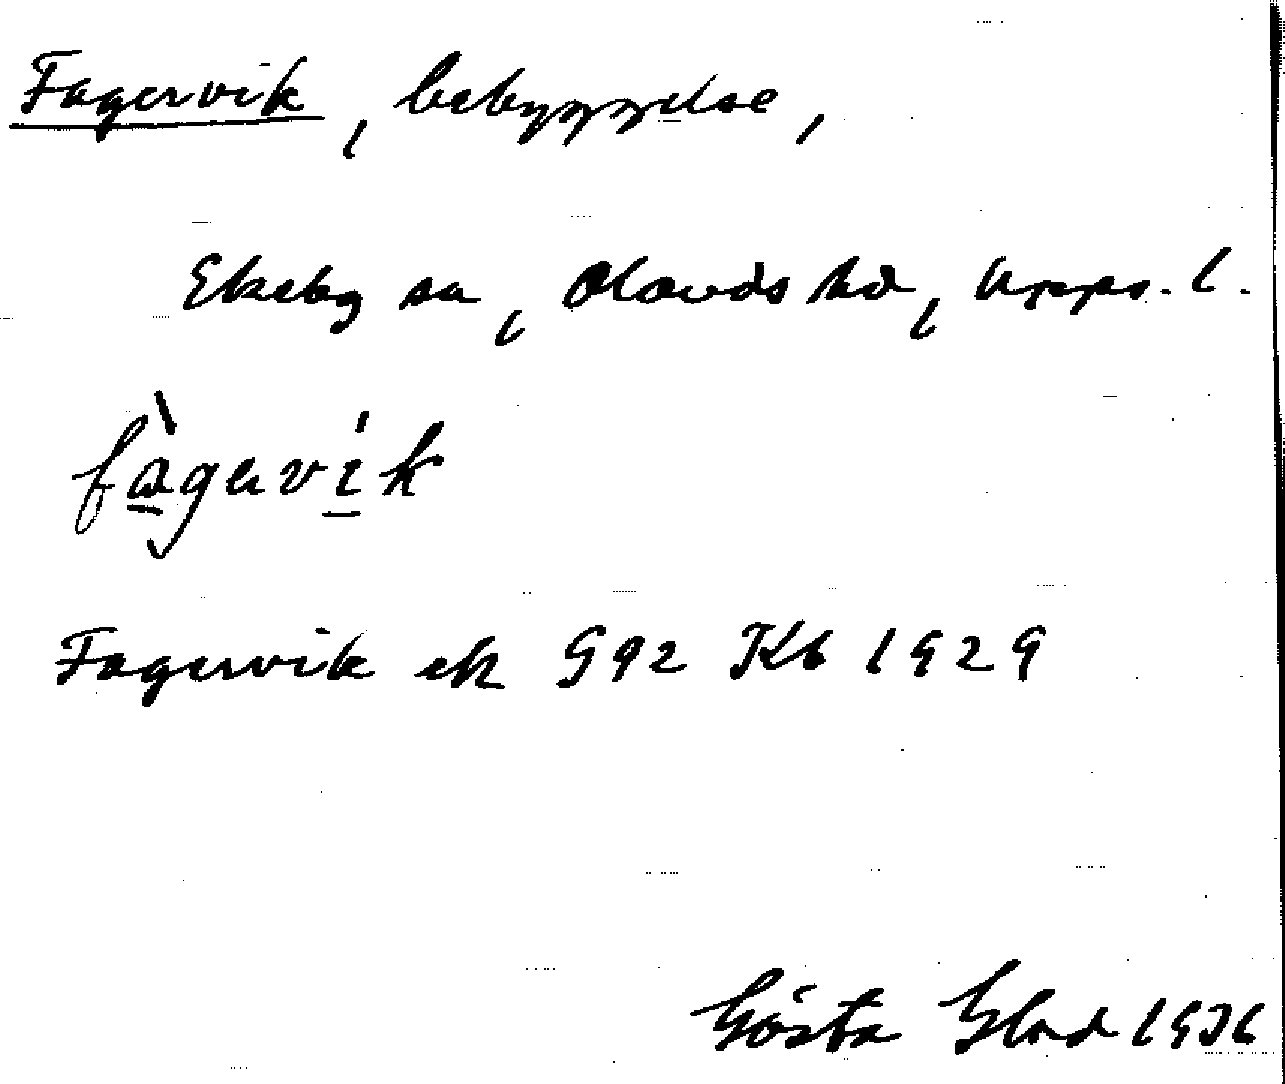 Fagervik, bebyggelse,
Ekeby sn, Olands hd, Upps. l.
fàgervík
Fagervik ek G92 Kb 1929
Gösta Glad 1936